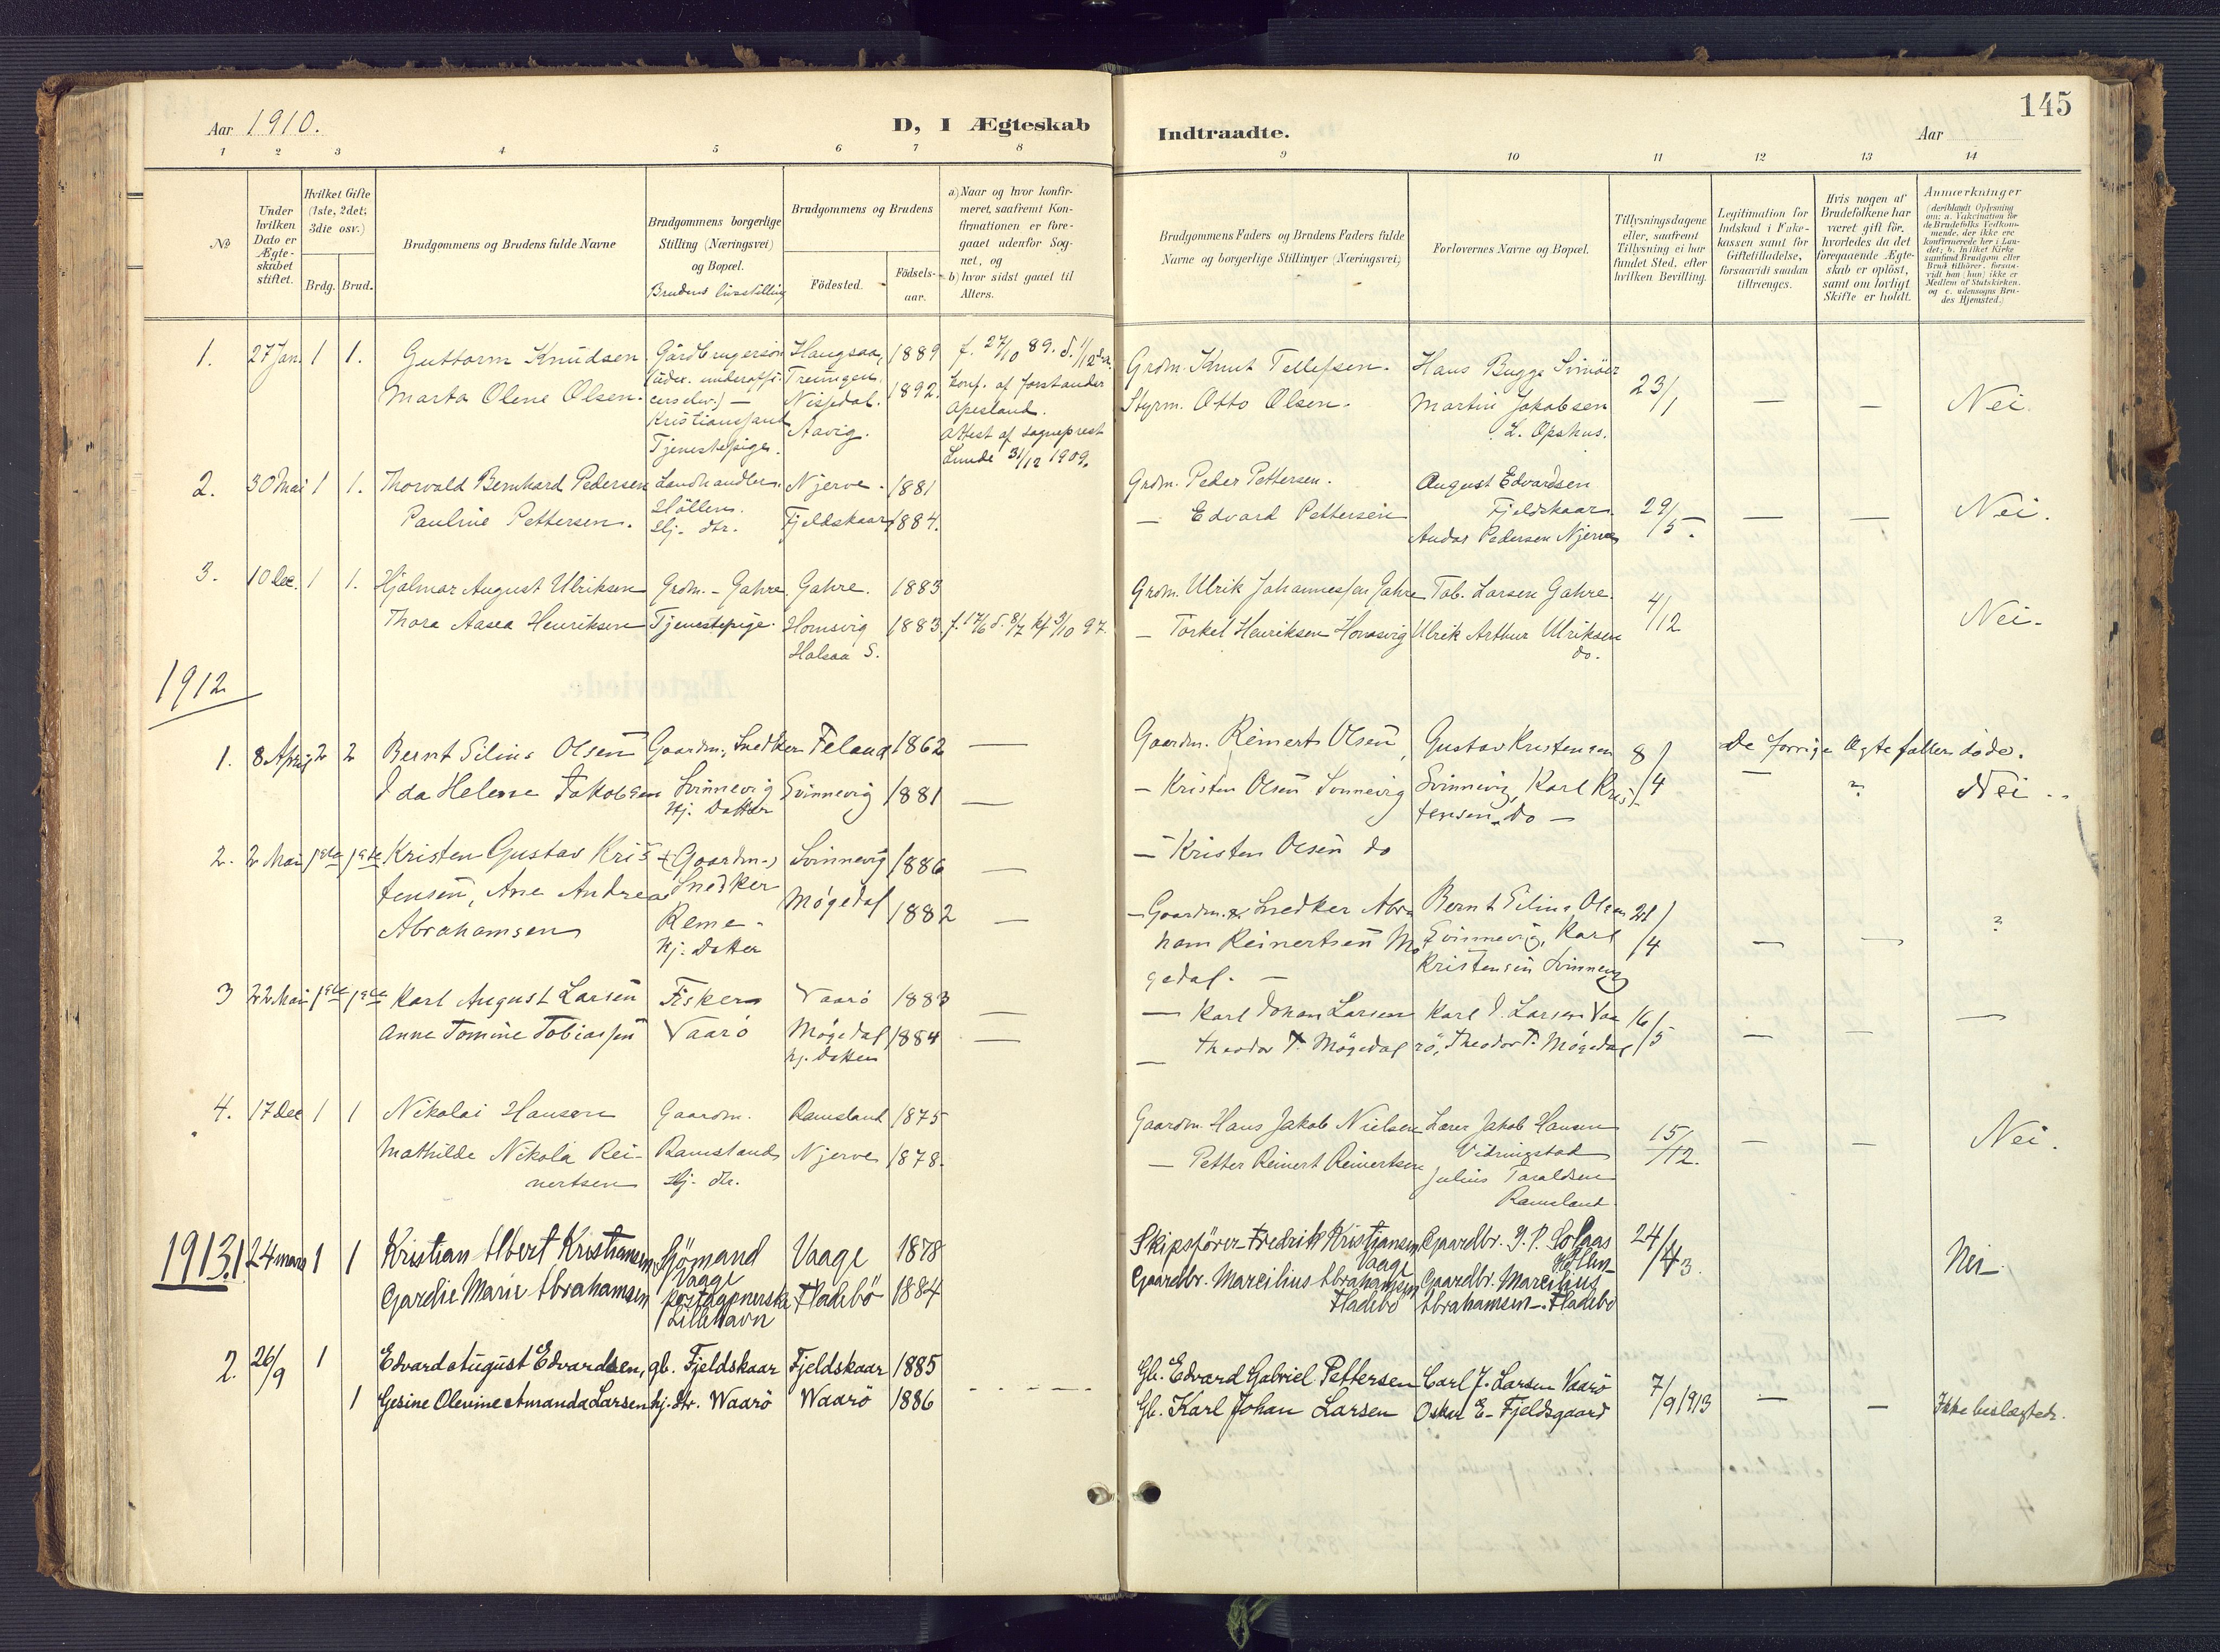 Aar 1910.
D, I Ægteskab
Indtraadte.
Aar
145
1 2 3 4 5 6 7 8 9 10 11 12 13 14
№
Under hvilken Dato er Ægteskabet stiftet.
Hvilket Gifte (1ste, 2det, 3die osv.)
Brdg. Brud.
Brudgommens og Brudens fulde Navne
Brudgommens borgerlige Stilling (Næringsvei) og Bopæl.
Brudens livsstilling
Brudgommens og Brudens
Födested.
Födsels-aar.
a) Naar og hvor konfirmeret, saafremt Konfirmationen er foregaaet udenfor Sognet, og
b) hvor sidst gaaet til Alters.
Brudgommens Faders og Brudens Faders fulde Navne og borgerlige Stillinger (Næringsvei)
Forlovernes Navne og Bopæl.
Tillysningsdagene eller, saafremt Tillysning ei har fundet Sted, efter hvilken Bevilling.
Legitimation for Indskud i Enkekassen samt for Giftetilladelse, forsaavidt saadan tiltrænges.
Hvis nogen af Brudefolkene har været gift för, hvorledes da det foregaaende Ægteskab er oplöst, samt om lovligt Skifte er holdt.
Anmærkninger
(deriblandt Oplysning om: a. Vakcination for de Brudefolks Vedkommende, der ikke ere konfirmerede her i Landet; b. hvilket Kirkesamfund Brudgom eller Brud tilhörer, forsaavidt han (hun) ikke er Medlem af Statskirken, og c. udensogns Brudes Hjemsted.)
1. 27 Jan. 1 1. Guttorm Knudsen Gårdbrugersön Haugsaa, 1889 f. 27/10 89. d. 1/12 s.a. Grdm. Knut Tellefsen. Hans Bugge
Marta Olene Olsen. Treungen. Nissedal. 1892. konf. af forstander Apesland. Styrm. Otto Olsen. Martin Jakobsen 23/1 — — Nei.
Kristianssand Aavig. Attest af sogneprest L. Opshus.
Tjenestepige. Lunde 31/12 1909.
2. 30 Mai 1 1. Thorvald Bernhard Pedersen Landhandler. Njerve. 1881 Grdm. Peder Pettersen. August Edvardsen
Pauline Pettersen. Höllen. Hj. dtr. Fjeldskaar 1884. — Edvard Pettersen Fjeldskaar. 29/5. — — Nei.
Pedersen Njerve
3. 10 Dec. 1 1. Hjalmar August Ulriksen Grdm. - Gahre. Gahre. 1883 Grdm. Ulrik Johannessen Gahre Tob. Larsen Gahre. 4/12
Thora Aasea Henriksen Tjenestepige. Homsvig Halsaa S. 1883. f. 17/6 d. 8/7 kf 3/10 97. — Torkel Henriksen Homsvig Ulrik Arthur Ulriksen do. Nei.
1912
1. 8 April 2 2 Bernt Silius Olsen Gaardm., Snedker Feland 1862 — Gaardm. Reinert Olsen, Gustav Kristensen 8/4 De forrige Ægtefæller døde.
Ida Helene Jakobsen Svinnevig Hj. Datter Svinnevig 1881 — — Kristen Olsen Svinnevig Svinnevig, Karl Kristensen, do — — ? Nei
2. 2 Mai 1ste 1ste Kristen Gustav Kristensen, Ane Andrea Abrahamsen (Gaardm.) Snedker Reme. Hj. Datter Svinnevig 1886 — — Kristen Olsen do
Møgedal 1882 — — Gaardm. & Snedker Abraham Reinertsen Møgedal. — Bernt Silius Olsen Svinnevig, Karl Kristensen Svinnevig 21/4 — — ?
3 22 Mai 1ste 1ste Karl August Larsen Fisker Vaarö 1883 — — Karl Johan Larsen Karl J. Larsen Vaarö, 16/5 — — —
Anne Tomine Tobiassen Vaarö Møgedal hj. Datter 1884 — — Theodor T. Møgedal Theodor T. Møgedal
4. 17 Dec 1 1 Nikolai Hansen Gaardm. Ramsland 1875 Gaardm. Hans Jakob Nielsen Lærer Jakob Hansen 15/12. — — Nei.
Mathilde Nikola Reinertsen Ramsland Hj. dtr. Njerve 1878. — Petter Reinert Reinertsen Vidringstad
Julius Taraldsen Ramsland.
1913. 1. 24 mars 1 1 Kristian Albert Kristiansen Sjömand Vaage Vaage 1878 Skipsförer Fredrik Kristiansen Vaage Gaardbr. J. P. Solaas Höllen
Gardie Marie Abrahamsen Lillehavn Fladebö 1884 Gaardbr. Marcilius Abrahamsen Fladebö Gaardbr. Marcilius Abrahamsen - Fladebö Nei.
2. 26/9 1 Edvard August Edvardsen, gb. Fjeldskaar Fjeldskaar 1885 Gb. Edvard Gabriel Pettersen Carl J. Larsen Vaarö 7/9 1913 — — Ikke beslægtede.
1 Gesine Olevine Amanda Larsen hj. dtr. Waarö Waarö 1886 Gb. Karl Johan Larsen Oskar E. Fjeldsgaard